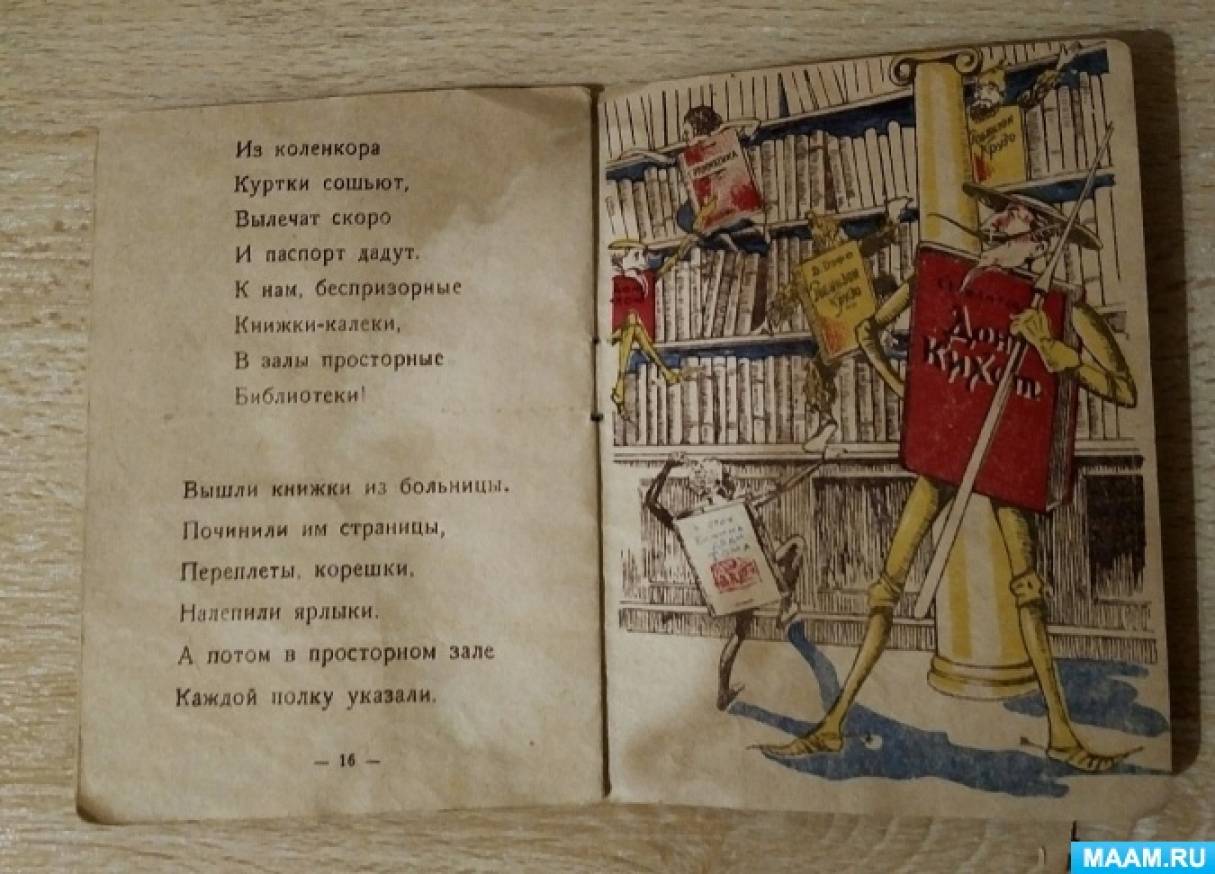 Из коленкора
Куртки сошьют,
Вылечат скоро
И паспорт дадут.
К нам, беспризорные
Книжки-калеки,
В залы просторные
Библиотеки!
Вышли книжки из больницы.
Починили им страницы,
Переплеты, корешки,
Налепили ярлыки.
А потом в просторном зале
Каждой полку указали.
— 16 —
Грамматика
Робинзон
Крузо
Д. Дефо
Робинзон
Крузо
Дон
Кихот
Хижина
дяди
Тома
MAAM.RU